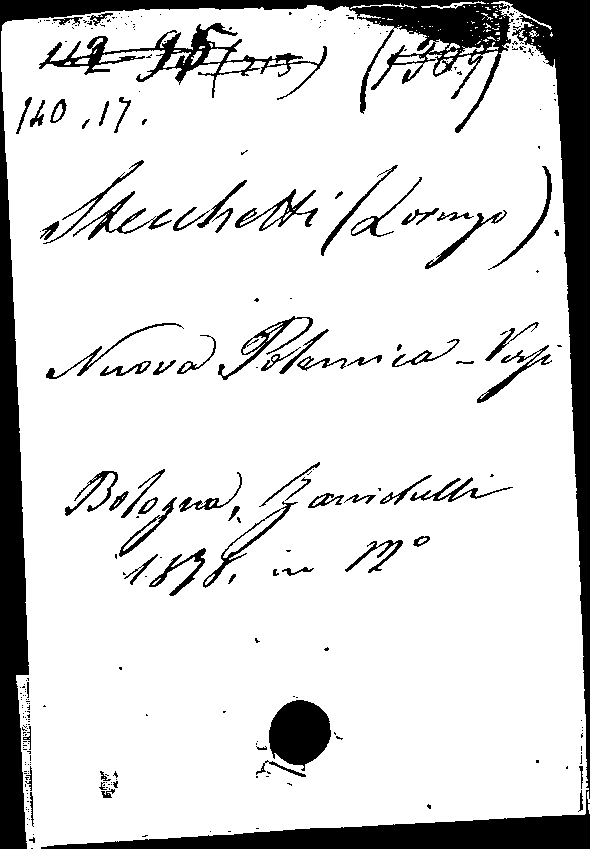 112 95 (213) (1309)
140.17.
Stecchetti (Lorenzo).
Nuova Polemica - Versi
Bologna, Zanichelli
1878. in 12º